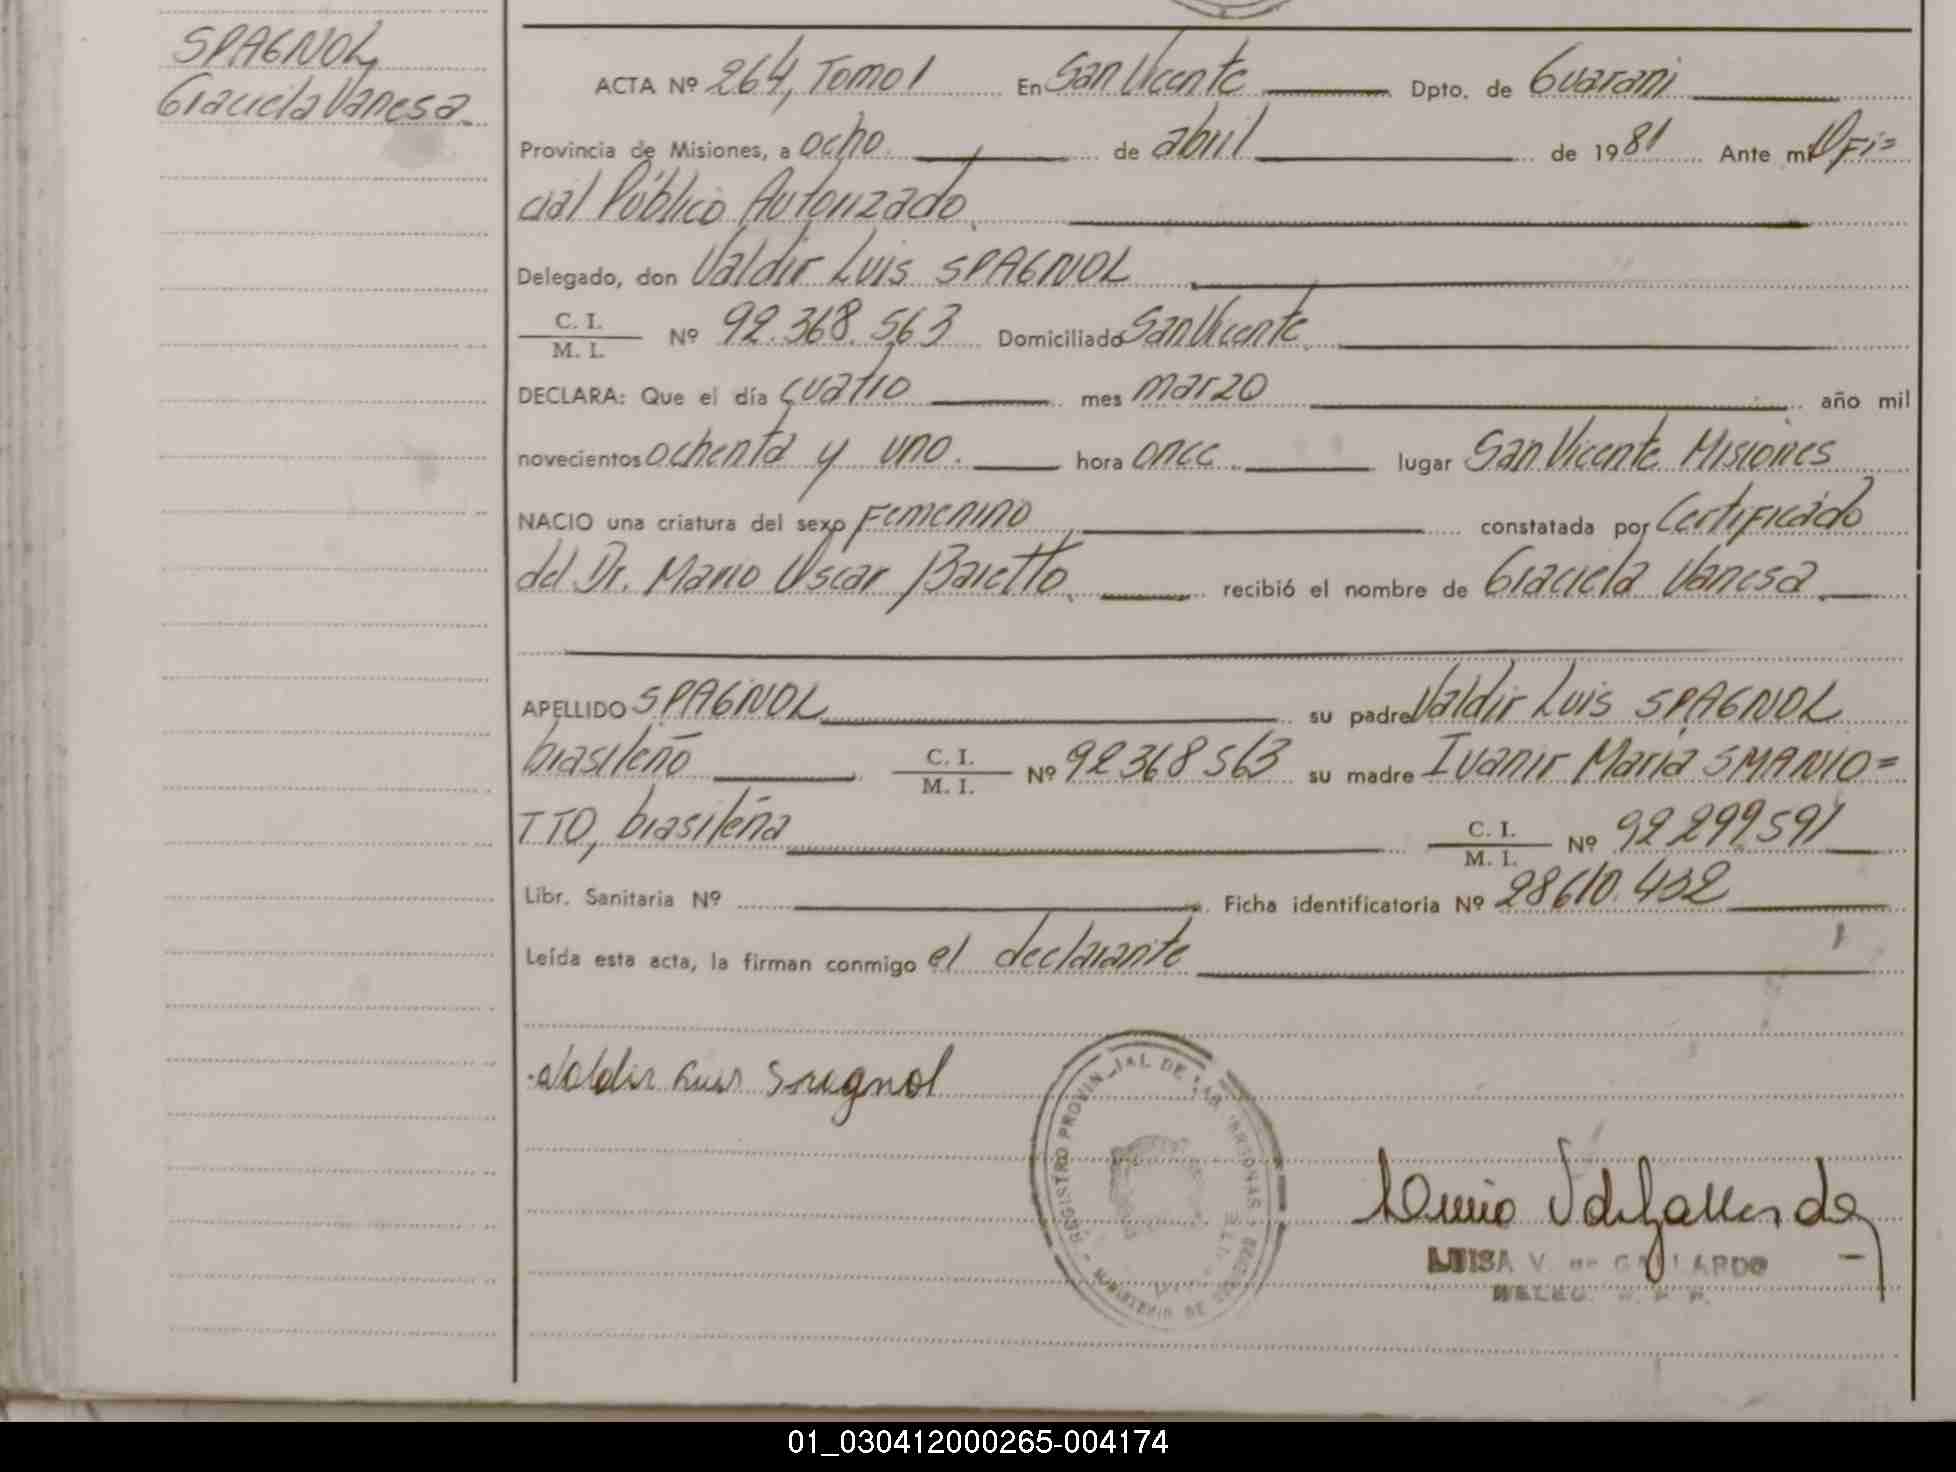 SPAGNOL,
Graciela Vanesa.
ACTA Nº 264, Tomo 1 En San Vicente Dpto. de Guarani
Provincia de Misiones, a ocho. de abril de 1981 Ante mi Ofi=
cial Público Autorizado.
Delegado, don Valdir Luis SPAGNOL
C. I.
M. I. Nº 92.368.563 Domiciliado San Vicente.
DECLARA: Que el día cuatro mes marzo año mil
novecientos ochenta y uno. hora once. lugar San Vicente Misiones
NACIO una criatura del sexo Femenino constatada por Certificado
del Dr. Mario Oscar Baretto. recibió el nombre de Graciela Vanesa.
APELLIDO SPAGNOL su padre Valdir Luis SPAGNOL
brasileño C. I.
M. I. Nº 92368563 su madre Ivanir Maria SMANIO=
TTO, brasileña C. I.
M. I. Nº 92299591
Libr. Sanitaria Nº Ficha identificatoria Nº 28610.432
Leída esta acta, la firman conmigo el declarante
Valdir Luis Spagnol
REGISTRO PROVINCIAL DE LAS PERSONAS
MINISTERIO DE
LUISA V. de GALLARDO
01_030412000265-004174